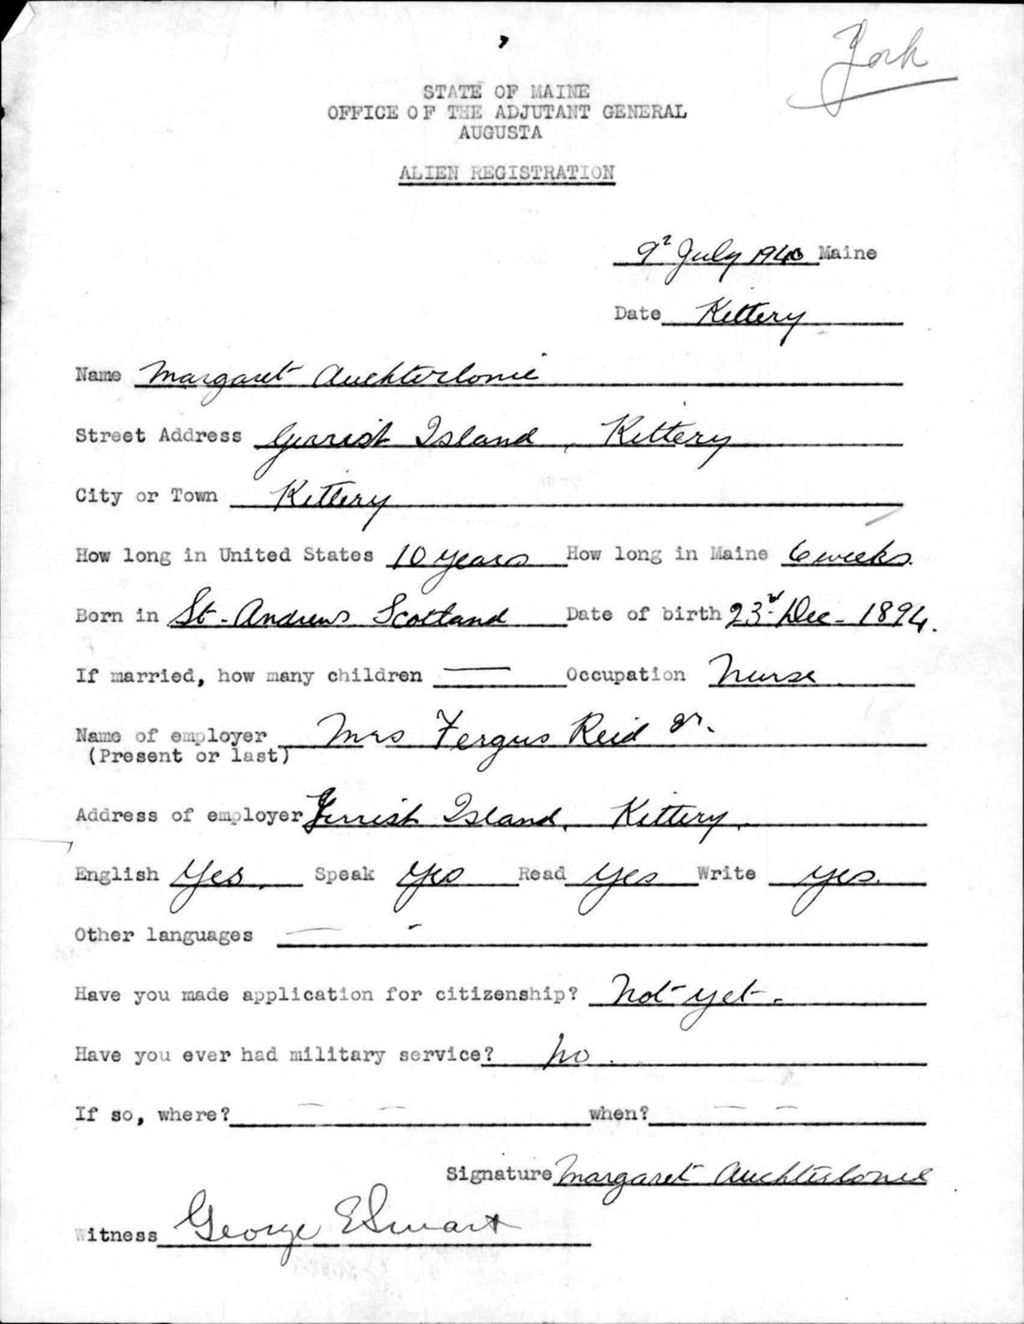 York
STATE OF MAINE
OFFICE OF THE ADJUTANT GENERAL
AUGUSTA
ALIEN REGISTRATION
9 July 1940 Maine
Date Kittery
Name Margaret Auchterlonie
Street Address Gerrish Island, Kittery
City or Town Kittery
How long in United States 10 years How long in Maine 6 weeks.
Born in St. Andrews Scotland Date of birth 23rd Dec - 1894.
If married, how many children — Occupation Nurse
Name of employer Mrs Fergus Reid Jr.
(Present or last)
Address of employer Gerrish Island, Kittery.
English Yes. Speak Yes Read Yes Write yes.
Other languages — -
Have you made application for citizenship? Not yet.
Have you ever had military service? No.
If so, where? — — when? — —
Signature Margaret Auchterlonie
Witness George E Swart